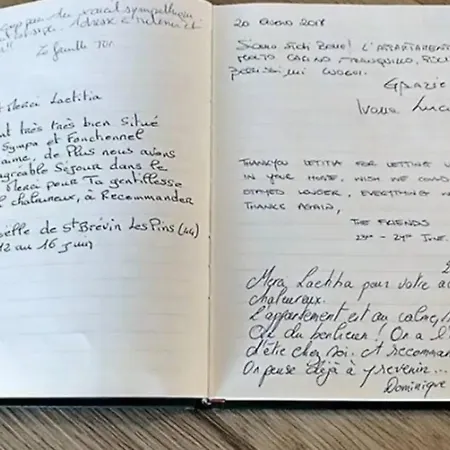 sympathique
La famille
Merci Laetitia
nt très très bien situé
Sympa et Fonctionnel
aimé, de Plus nous avons
gréable Séjour dans le
Merci pour Ta gentillesse
chaleureux, à Recommander
elle de St Brévin Les Pins (44)
12 au 16 Juin
20 2018
Siamo stati bene! L'appartament
molto carino, tranquillo,
Grazie
Ivana Luca
Thank you Letitia for letting u
in your home, wish we could
stayed longer, everything
Thanks again,
The Friends
- 24th June
Merci Laetitia pour votre ac
chaleureux.
L'appartement est au calme,
du bonheur! On a l'
d'être chez soi. et recomman
On pense déjà à y revenir...
Dominique